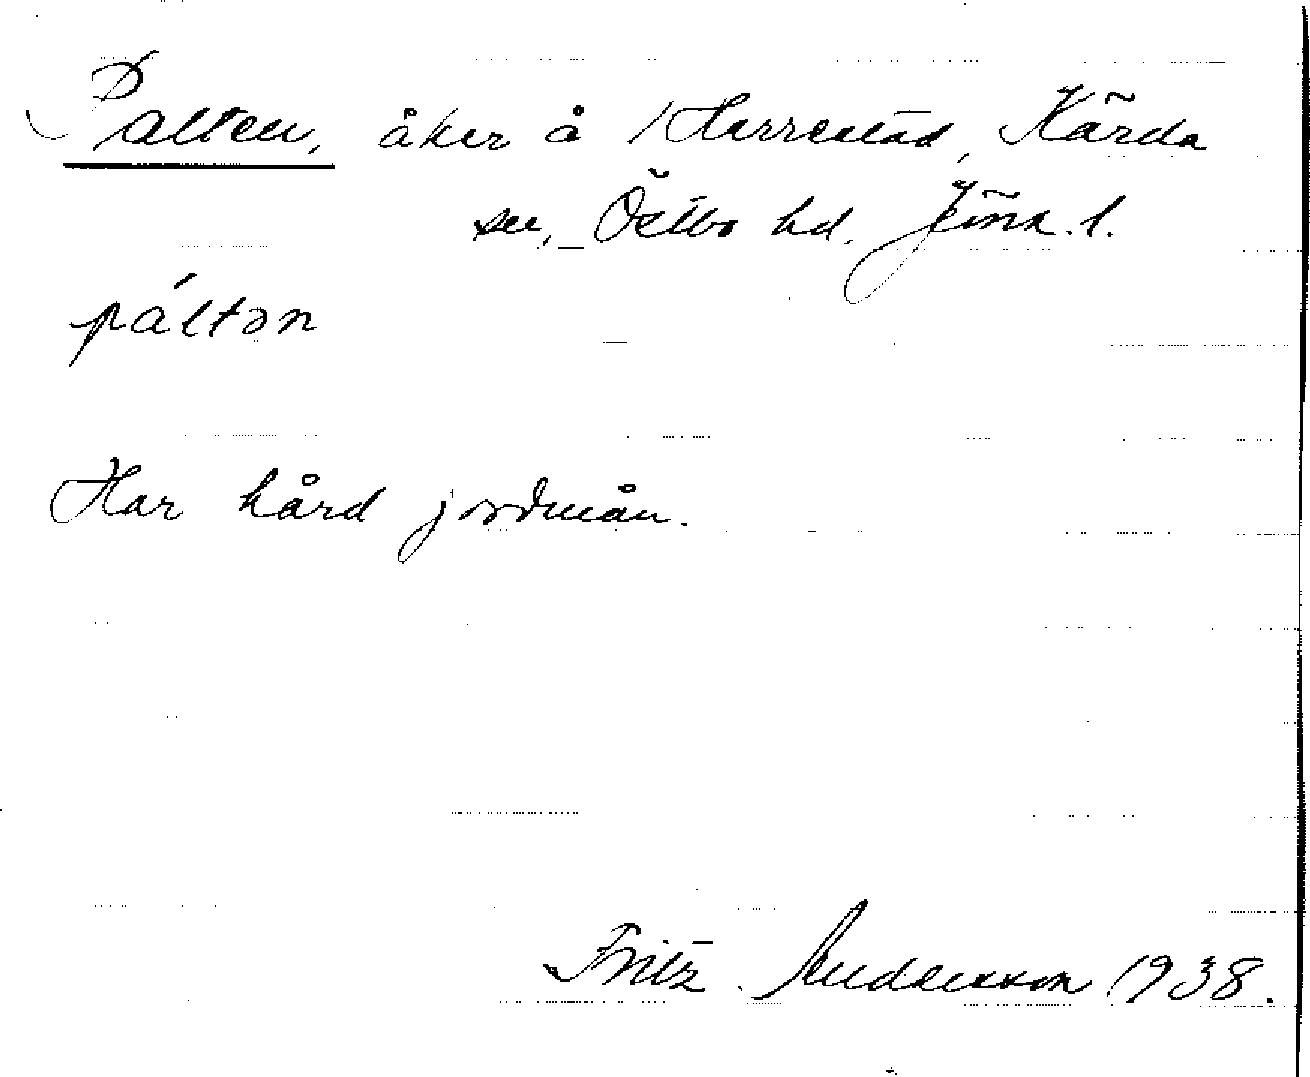 Palten, åker å Herrestad, Kärda
sn, Östbo hd. Jönk. l.
páltən
Har hård jordmån.
Fritz Andersson 1938.